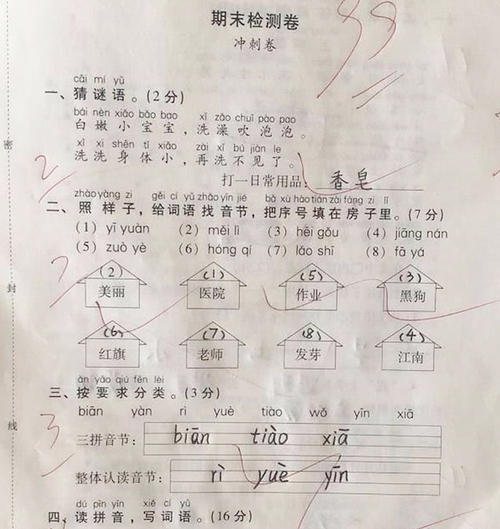 期末检测卷
99
冲刺卷
cāi mí yǔ
一、猜谜语。(2分)
bái nèn xiǎo bǎo bao xǐ zǎo chuī pào pao
白嫩小宝宝,洗澡吹泡泡。
xǐ xǐ shēn tǐ xiǎo zài xǐ bú jiàn le
洗洗身体小,再洗不见了。
打一日常用品: 香皂
2
zhào yàng zi gěi cí yǔ zhǎo yīn jié bǎ xù hào tián zài fáng zi lǐ
二、照样子,给词语找音节,把序号填在房子里。(7分)
(1) yī yuàn (2) měi lì (3) hēi gǒu (4) jiāng nán
(5) zuò yè (6) hóng qí (7) lǎo shī (8) fā yá
7
(2) (1) (5) (3)
美丽 医院 作业 黑狗
(6) (7) (8) (4)
红旗 老师 发芽 江南
àn yāo qiú fēn lèi
三、按要求分类。(3分)
biān yàn rì yuè tiào wǒ yīn xiā
3
三拼音节: biān tiào xiā
整体认读音节: rì yuè yīn
dú pīn yīn xiě cí yǔ
四、读拼音,写词语。(16分)
密
封
线